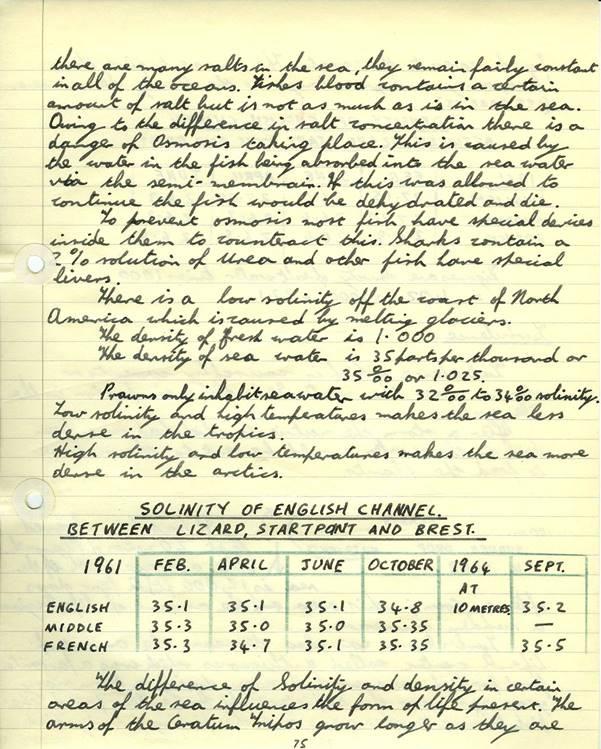 there are many salts in the sea, they remain fairly constant
in all of the oceans. Fishes blood contains a certain
amount of salt but is not as much as is in the sea.
Owing to the difference in salt concentration there is a
danger of Osmosis taking place. This is caused by
the water in the fish being absorbed into the sea water
via the semi-membrain. If this was allowed to
continue the fish would be dehydrated and die.
To prevent osmosis most fish have special devices
inside them to counteract this. Sharks contain a
2% solution of Urea and other fish have special
livers.
There is a low solinity off the coast of North
America which is caused by melting glaciers.
The density of fresh water is 1·000
The density of sea water is 35 parts per thousand or
35 ‰ or 1·025.
Prawns only inhabit seawater with 32‰ to 34‰ solinity.
Low solinity and high temperatures makes the sea less
dense in the tropics.
High solinity and low temperatures makes the sea more
dense in the arctics.
SOLINITY OF ENGLISH CHANNEL.
BETWEEN LIZARD, STARTPOINT AND BREST.
1961 FEB. APRIL JUNE OCTOBER 1964 SEPT.
AT
ENGLISH 35·1 35·1 35·1 34·8 10 METRES 35·2
MIDDLE 35·3 35·0 35·0 35·35 —
FRENCH 35·3 34·7 35·1 35·35 35·5
The difference of Solinity and density in certain
areas of the sea influences the form of life present. The
arms of the Ceratum Tripos grow longer as they are
75